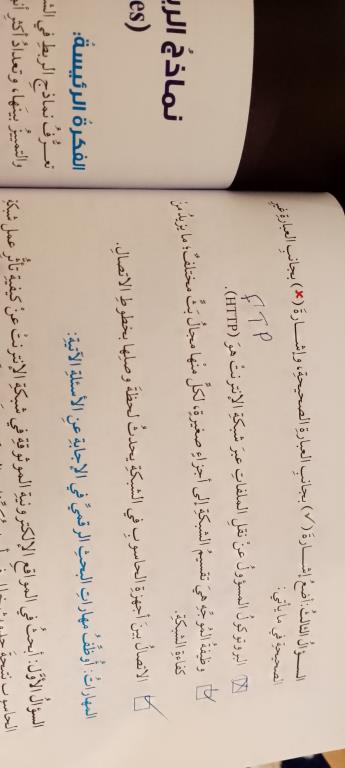 نماذجُ
الفكرةُ الرئيسةُ:
تعرُّفُ نماذجِ الربطِ في
والتمييزُ بينَها، وتعدادُ أكثرِ
السؤالُ الثالثُ: أضعُ إشارةَ (✓) بجانبِ العبارةِ الصحيحةِ، وإشارةَ (×) بجانبِ العبارةِ غيرِ
الصحيحةِ في ما يأتي:
البروتوكولُ المسؤولُ عنْ نقلِ الملفاتِ عبرَ شبكةِ الإنترنتْ هوَ (HTTP).
FTP
وظيفةُ المُوجِّهِ هيَ تقسيمُ الشبكةِ إلى أجزاءٍ صغيرةٍ، لكلٍّ منْها مجالُ بَثٍّ مختلفٌ؛ ما يزيدُ منْ
كفاءةِ الشبكةِ.
الاتصالُ بينَ أجهزةِ الحاسوبِ في الشبكةِ يحدثُ لحظةَ وصلِها بخطوطِ الاتصالِ.
المهاراتُ: أُوظِّفُ مهاراتِ البحثِ الرقميِّ في الإجابةِ عنِ الأسئلةِ الآتيةِ:
السؤالُ الأوَّلُ: أبحثُ في المواقعِ الإلكترونيةِ الموثوقةِ في شبكةِ الإنترنتْ عنْ كيفيةِ تأثُّرِ عملِ شبكةِ